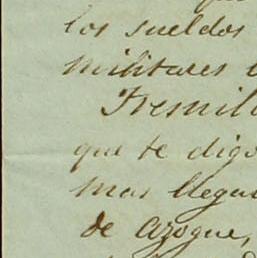 los sueldos
militares
Fresnill
que te digo
mas llegu
de azogue,